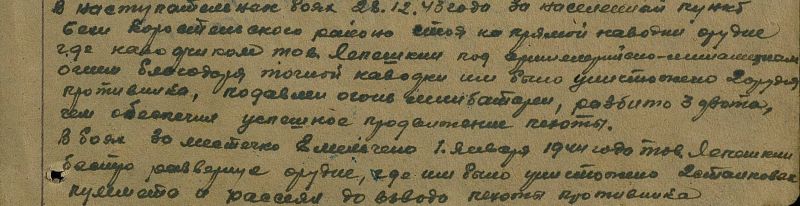 В наступательных боях 28.12.43 года за населенный пункт
Беги Коростельского района стоя на прямой наводке орудие
где наводчиком тов. Лепешкин под артиллерийско-минометным
огнем благодаря точной наводки им было уничтожено 2 орудия
противника, подавлен огонь минбатареи, разбито 3 дзота,
чем обеспечил успешное продвижение пехоты.
В боях за местечко Емельчено 1. Января 1944 года тов. Лепешкин
быстро развернув орудие, где им было уничтожено 2 станковых
пулемета и рассеян до взвода пехоты противника